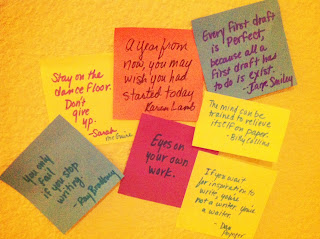 Stay on the
dance floor.
Don't
give
up.
-Sarah
A year from
now, you may
wish you had
started today
Karen Lamb
Every first draft
is perfect,
because all a
first draft has
to do is exist.
-Jane Smiley
You only
fail
if you stop
writing.
-Ray Bradbury
Eyes on
your own
work.
The mind can be
trained to relieve
itself on paper.
-Billy Collins
If you wait
for inspiration to
write, you're
not a writer, you're
a waiter.
-Dan
Poynter